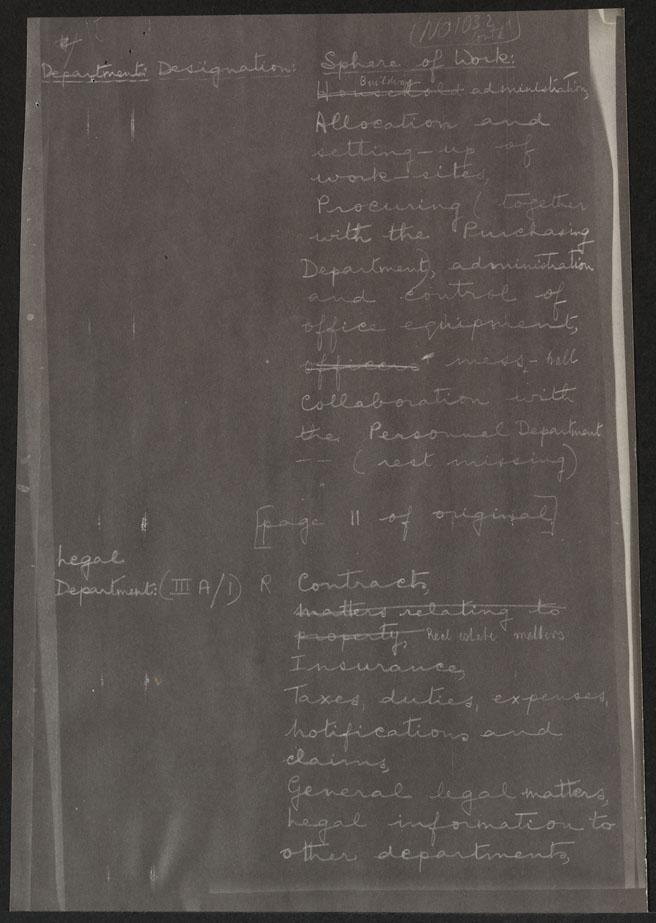 (NO1032
cont'd)
4
Department: Designation: Sphere of Work:
Building
Household administration,
Allocation and
setting-up of
work-sites,
Procuring (together
with the Purchasing
Department), administration
and control of
office equipment,
officers mess-hall
Collaboration with
the Personnel Department
-- (rest missing)
[page 11 of original]
Legal
Department: (III A/1) R Contracts,
matters relating to
property, Real estate matters
Insurance,
Taxes, duties, expenses,
Notifications and
claims,
General legal matters,
Legal information to
other departments,